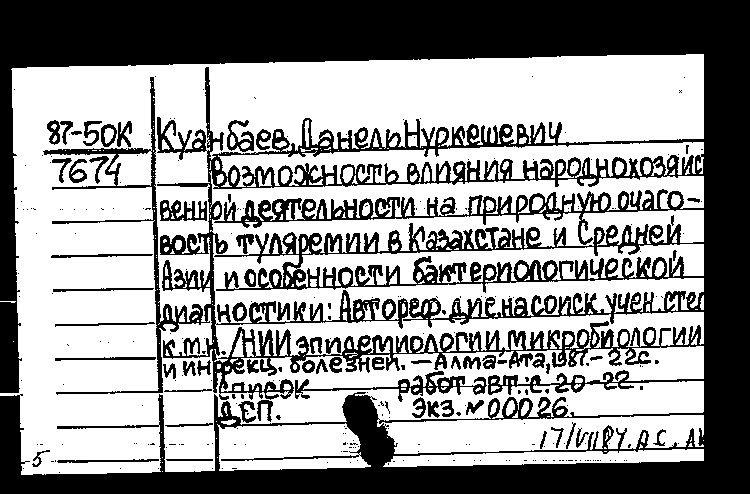 87-50К Куанбаев, Данель Нуркешевич.
7674 Возможность влияния народнохозяйс
венной деятельности на природную очаго-
вость туляремии в Казахстане и Средней
Азии и особенности бактериологической
диагностики: Автореф. дис. на соиск. учен. степ
к.м.н. /НИИ эпидемиологии, микробиологии
и инфекц. болезней. — Алма-Ата, 1987. - 22с.
Список работ авт.: с. 20-22.
ДСП. Экз. №00026.
17/VII87. А С, АК
5